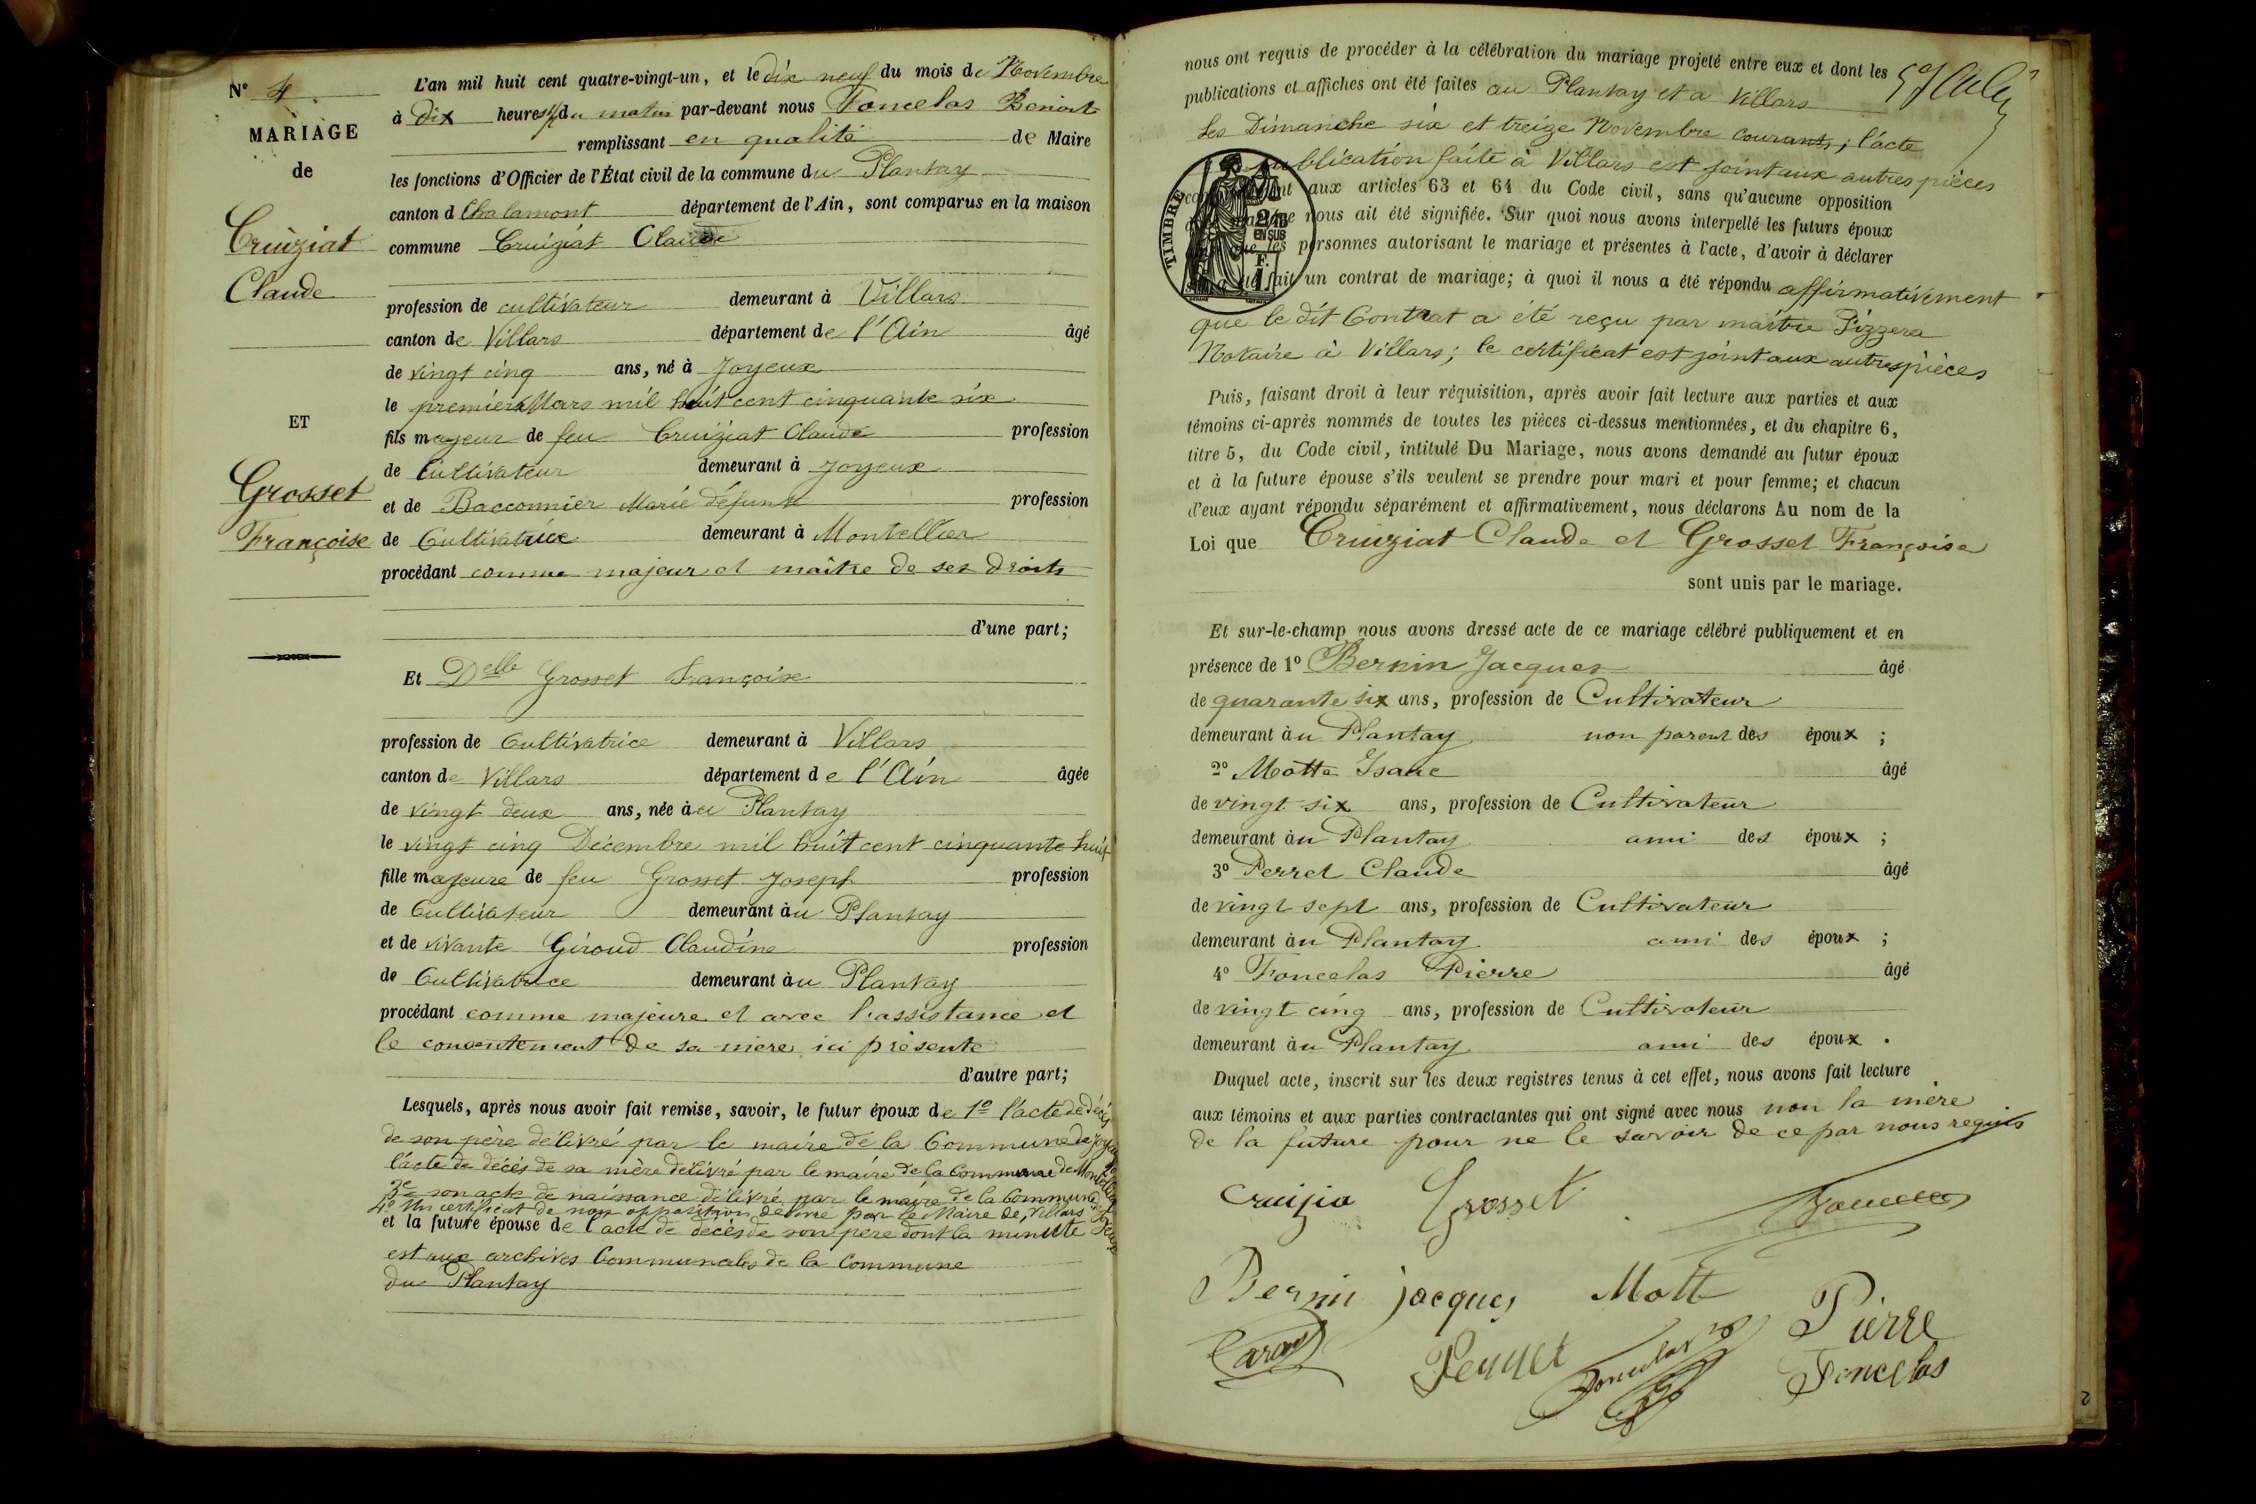 N° 4
MARIAGE
de
Cruiziat
Claude
ET
Grosset
Françoise
L'an mil huit cent quatre-vingt-un, et le dix neuf du mois de Novembre
à dix heures ½ du matin par-devant nous Foncelas Benoit
remplissant en qualité de Maire
les fonctions d'Officier de l'État civil de la commune du Plantay
canton d Chalamont département de l'Ain, sont comparus en la maison
commune Cruiziat Claude
profession de cultivateur demeurant à Villars
canton de Villars département de l'Ain âgé
de vingt cinq ans, né à Joyeux
le premier Mars mil huit cent cinquante six
fils majeur de feu Cruiziat Claude profession
de Cultivateur demeurant à Joyeux
et de Bacconnier Marie défunte profession
de Cultivatrice demeurant à Montellier
procédant comme majeur et maître de ses droits
d'une part;
Et Delle Grosset Françoise
profession de Cultivatrice demeurant à Villars
canton de Villars département de l'Ain âgée
de vingt deux ans, née àu Plantay
le vingt cinq Décembre mil huit cent cinquante huit
fille majeure de feu Grosset Joseph profession
de Cultivateur demeurant àu Plantay
et de vivante Giroud Claudine profession
de Cultivatrice demeurant àu Plantay
procédant comme majeure et avec l'assistance et
le consentement de sa mère ici présente
d'autre part;
Lesquels, après nous avoir fait remise, savoir, le futur époux de 1º l'acte de décès
de son père délivré par le maire de la Commune de Joyeux
l'acte de décès de sa mère délivré par le maire de la Commune de Montellier
3º son acte de naissance délivré par le maire de la Commune de Joyeux
4º Un certificat de non opposition délivré par le Maire de Villars
et la future épouse de l'acte de décès de son père dont la minute
est aux archives Communales de la Commune
du Plantay
nous ont requis de procéder à la célébration du mariage projeté entre eux et dont les
publications et affiches ont été faites au Plantay et a Villars
les Dimanche six et treize Novembre courant, ; l'acte
publication faite à Villars est joint aux autres pièces
aux articles 63 et 64 du Code civil, sans qu'aucune opposition
nous ait été signifiée. Sur quoi nous avons interpellé les futurs époux
que les personnes autorisant le mariage et présentes à l'acte, d'avoir à déclarer
fait un contrat de mariage; à quoi il nous a été répondu affirmativement
que le dit Contrat a été reçu par maître Pizzera
Notaire à Villars; le certificat est joint aux autres pièces
TIMBRE
2/10
EN SUS
Puis, faisant droit à leur réquisition, après avoir fait lecture aux parties et aux
témoins ci-après nommés de toutes les pièces ci-dessus mentionnées, et du chapitre 6,
titre 5, du Code civil, intitulé Du Mariage, nous avons demandé au futur époux
et à la future épouse s'ils veulent se prendre pour mari et pour femme; et chacun
d'eux ayant répondu séparément et affirmativement, nous déclarons Au nom de la
Loi que Cruiziat Claude et Grosset Françoise
sont unis par le mariage.
Et sur-le-champ nous avons dressé acte de ce mariage célébré publiquement et en
présence de 1º Bernin Jacques âgé
de quarante six ans, profession de Cultivateur
demeurant àu Plantay non parent des époux ;
2º Motte Isaac âgé
de vingt six ans, profession de Cultivateur
demeurant àu Plantay ami des époux ;
3º Perret Claude âgé
de vingt sept ans, profession de Cultivateur
demeurant àu Plantay ami des époux ;
4º Foncelas Pierre âgé
de vingt cinq ans, profession de Cultivateur
demeurant àu Plantay ami des époux .
Duquel acte, inscrit sur les deux registres tenus à cet effet, nous avons fait lecture
aux témoins et aux parties contractantes qui ont signé avec nous non la mère
de la future pour ne le savoir de ce par nous requis
Cruizia Grosset
Bernin jacques Mott
Perret Foncelas Pierre
Foncelas